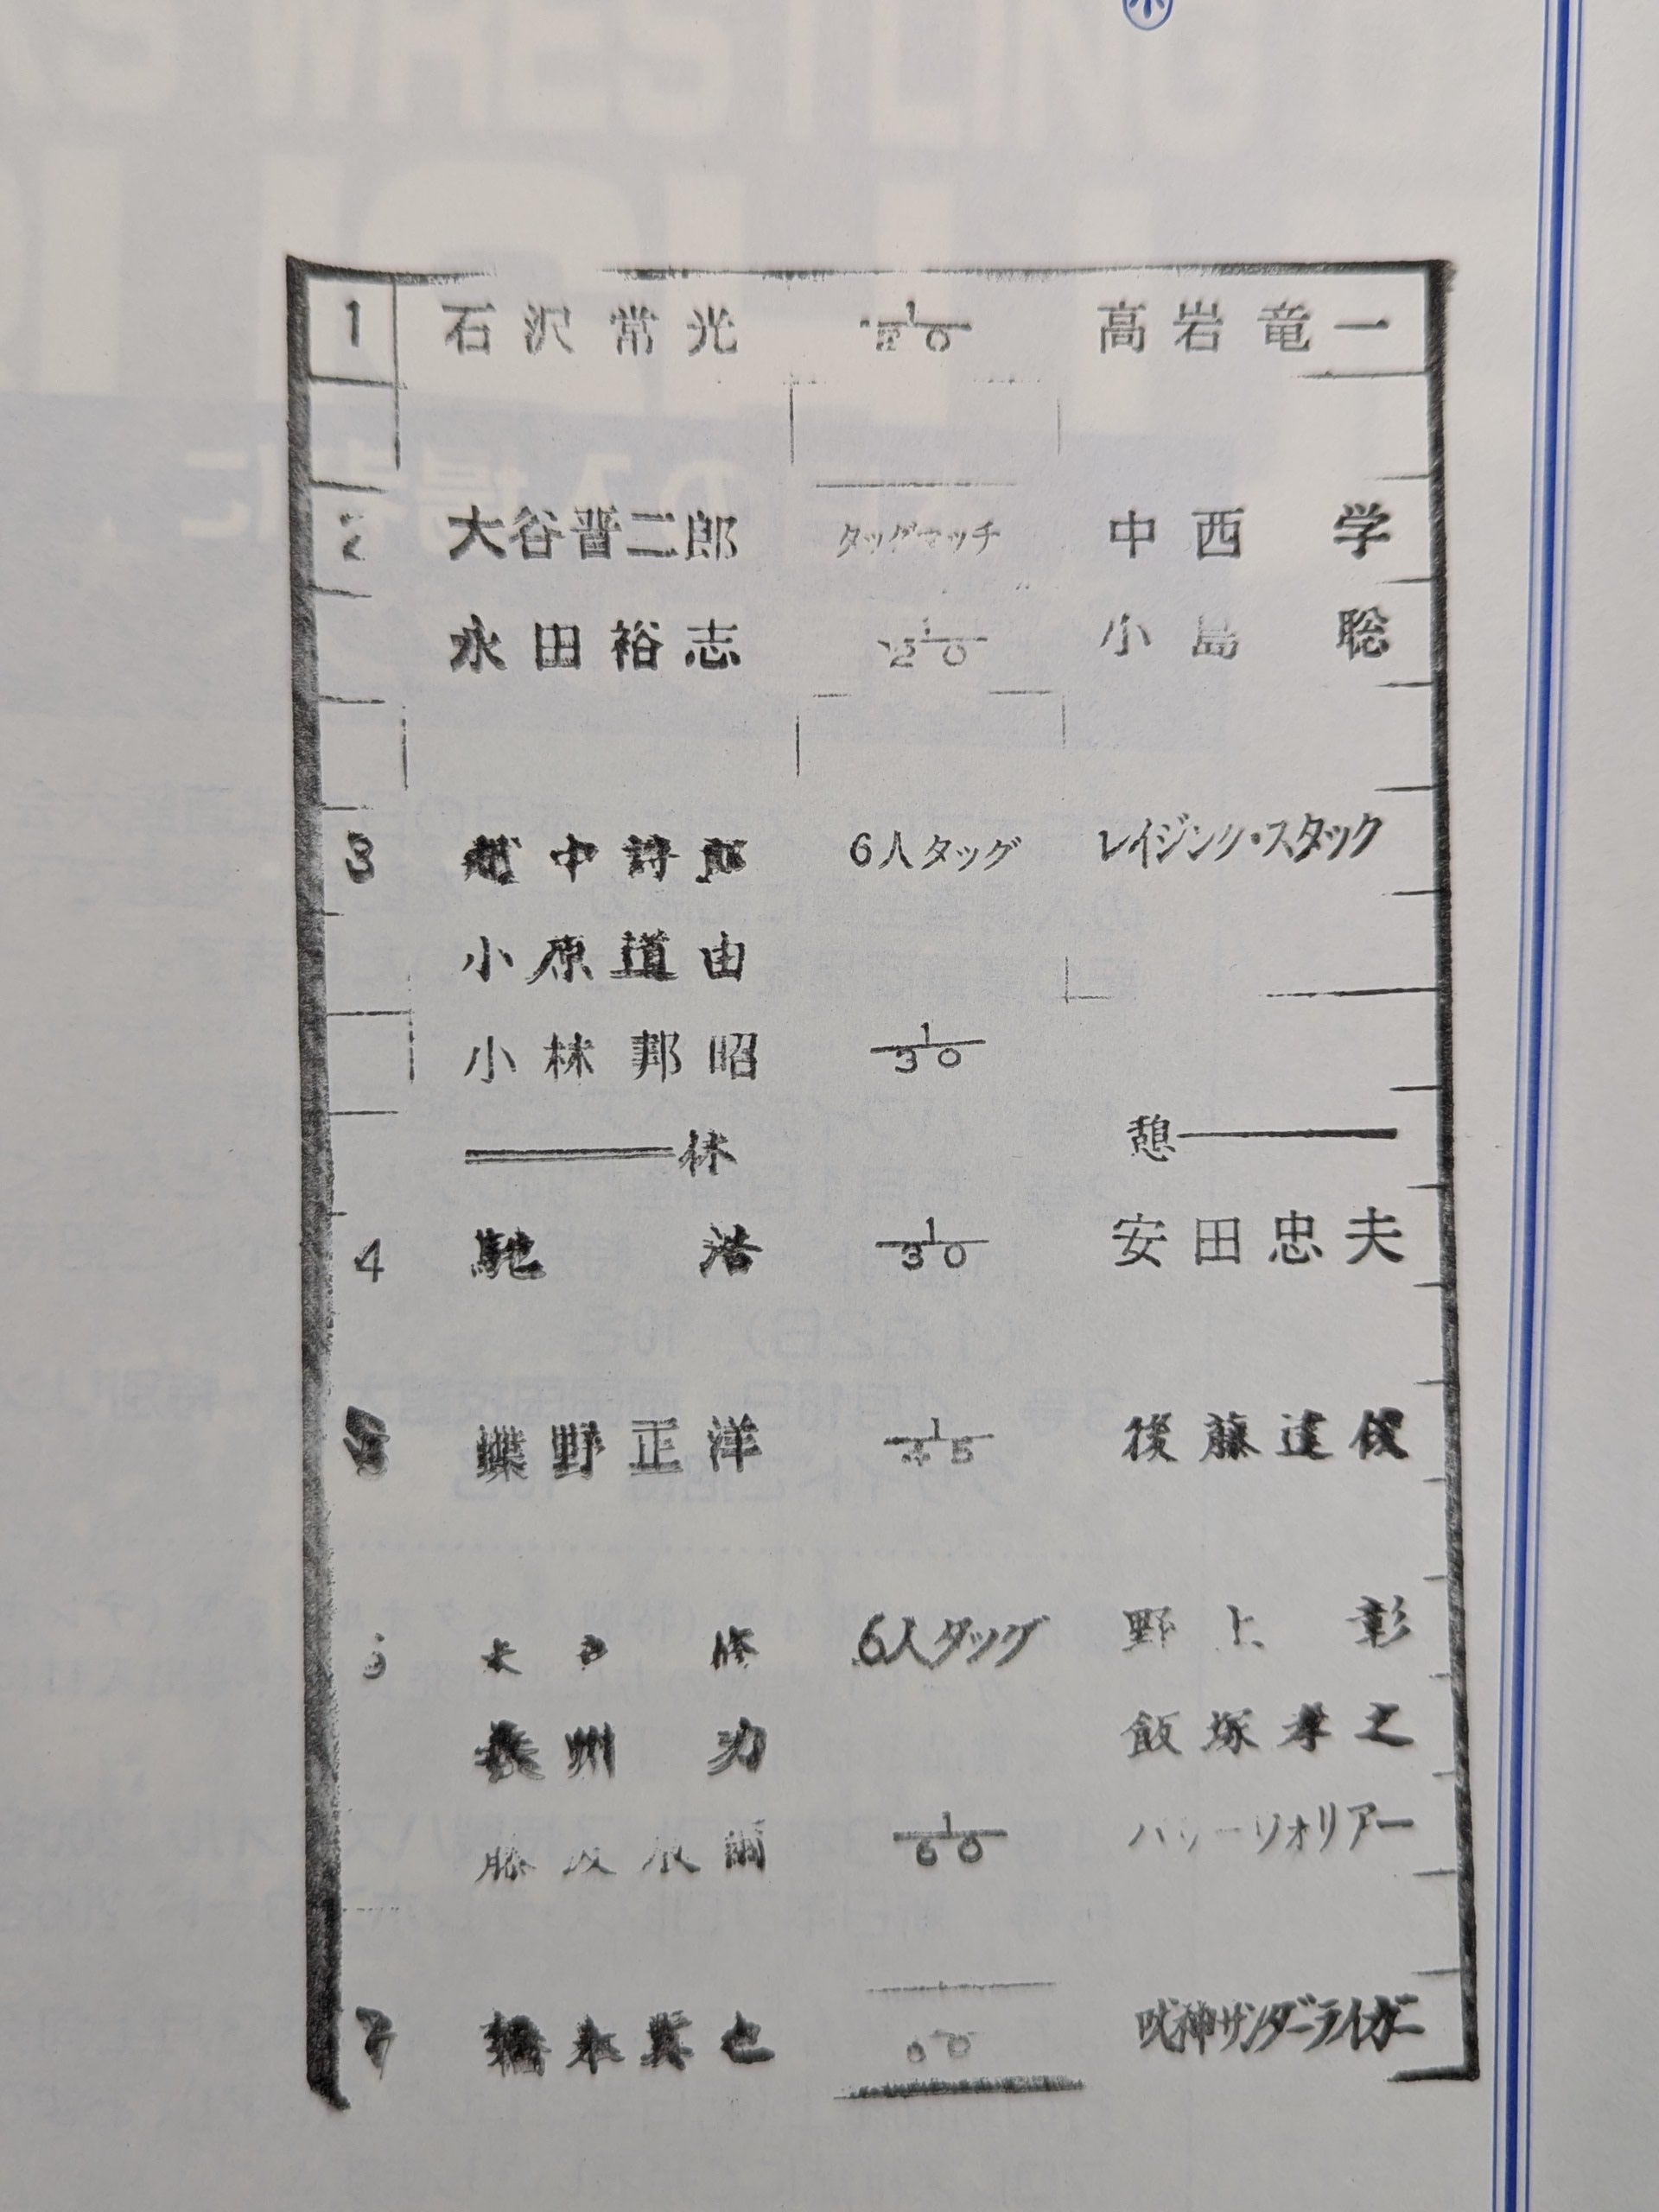 1 石沢常光 1/20 高岩竜一
2 大谷晋二郎 タッグマッチ 中西学
永田裕志 1/20 小島聡
3 越中詩郎 6人タッグ レイジング・スタック
小原道由
小林邦昭 1/30
休 憩
4 馳浩 1/30 安田忠夫
蝶野正洋 1/45 後藤達俊
6人タッグ 野上彰
長州力 飯塚孝之
藤波辰爾 1/60
7 橋本真也 獣神サンダーライガー